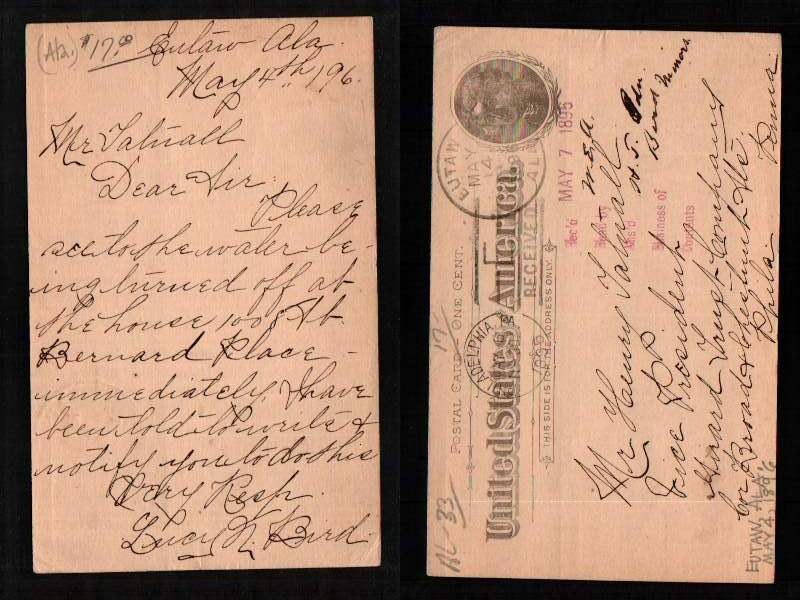 (Ala.) $17.00 Eutaw Ala.
May 4th, 196.
Mr Tatnall
Dear Sir.
Please
see to the water be-
ing turned off at
the house 1008 St.
Bernard Place -
immediately, I have
been told to write &
notify you to do this
Very Resp.
Lucy N. Bird.
POSTAL CARD - ONE CENT.
United States of America.
THIS SIDE IS FOR THE ADDRESS ONLY.
EUTAW
MAY
ALA
RECEIVED
ADELPHIA, PA
1895
Rec'd MAY 7 1895
Business of
Mr Henry Tatnall
Vice President
Girard Trust Company
Cor Broad & Chestnut Sts
Phila Penna
17-
BL-33
EUTAW, ALA.
MAY 4, 1896